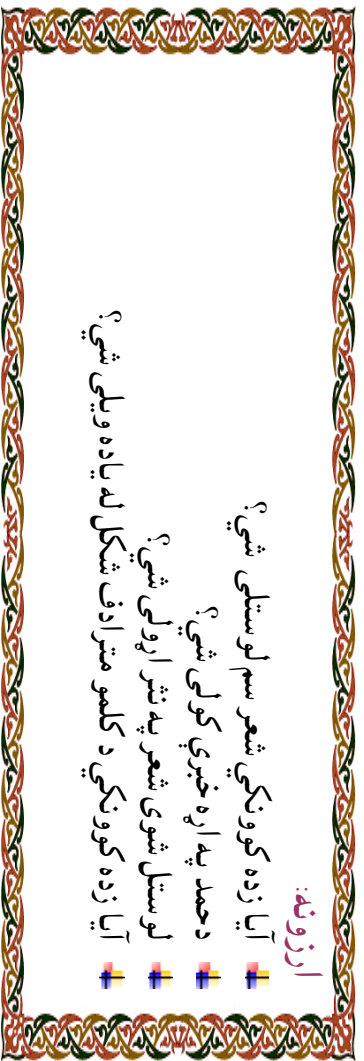 ارزونه:
آیا زده کوونکي شعر سم لوستلی شي؟
دحمد په اړه خبري کولی شي؟
لوستل شوی شعر په نثر اړولی شي؟
آیا زده کوونکي د کلمو مترادف شکل له یاده ویلی شي؟